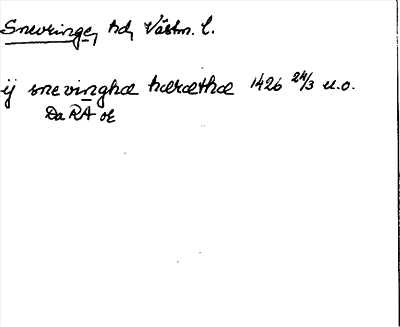 Snevringe, hd, Västm. l.
ij snevinghæ hæræthæ 1426 24/3 u.o.
Da RA or